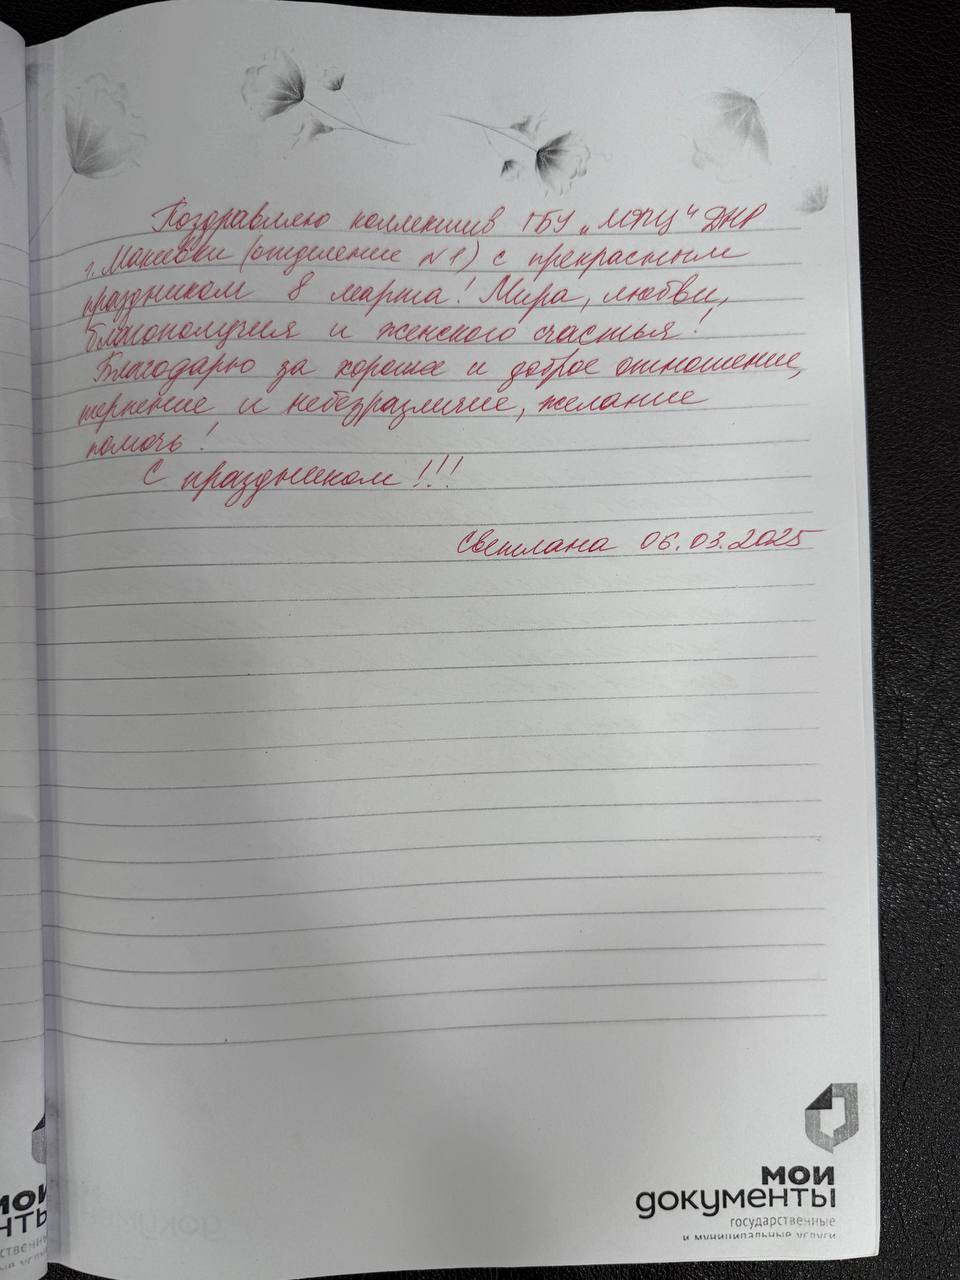 Поздравляю коллектив ГБУ „МФЦ“ ДНР
г. Макеевки (отделение №1) с прекрасным
праздником 8 марта! Мира, любви,
благополучия и женского счастья!
Благодарю за хорошее и доброе отношение,
терпение и небезразличие, желание
помочь!
С праздником!!!
Светлана 06.03.2025
мои
документы
государственные
и муниципальные услуги